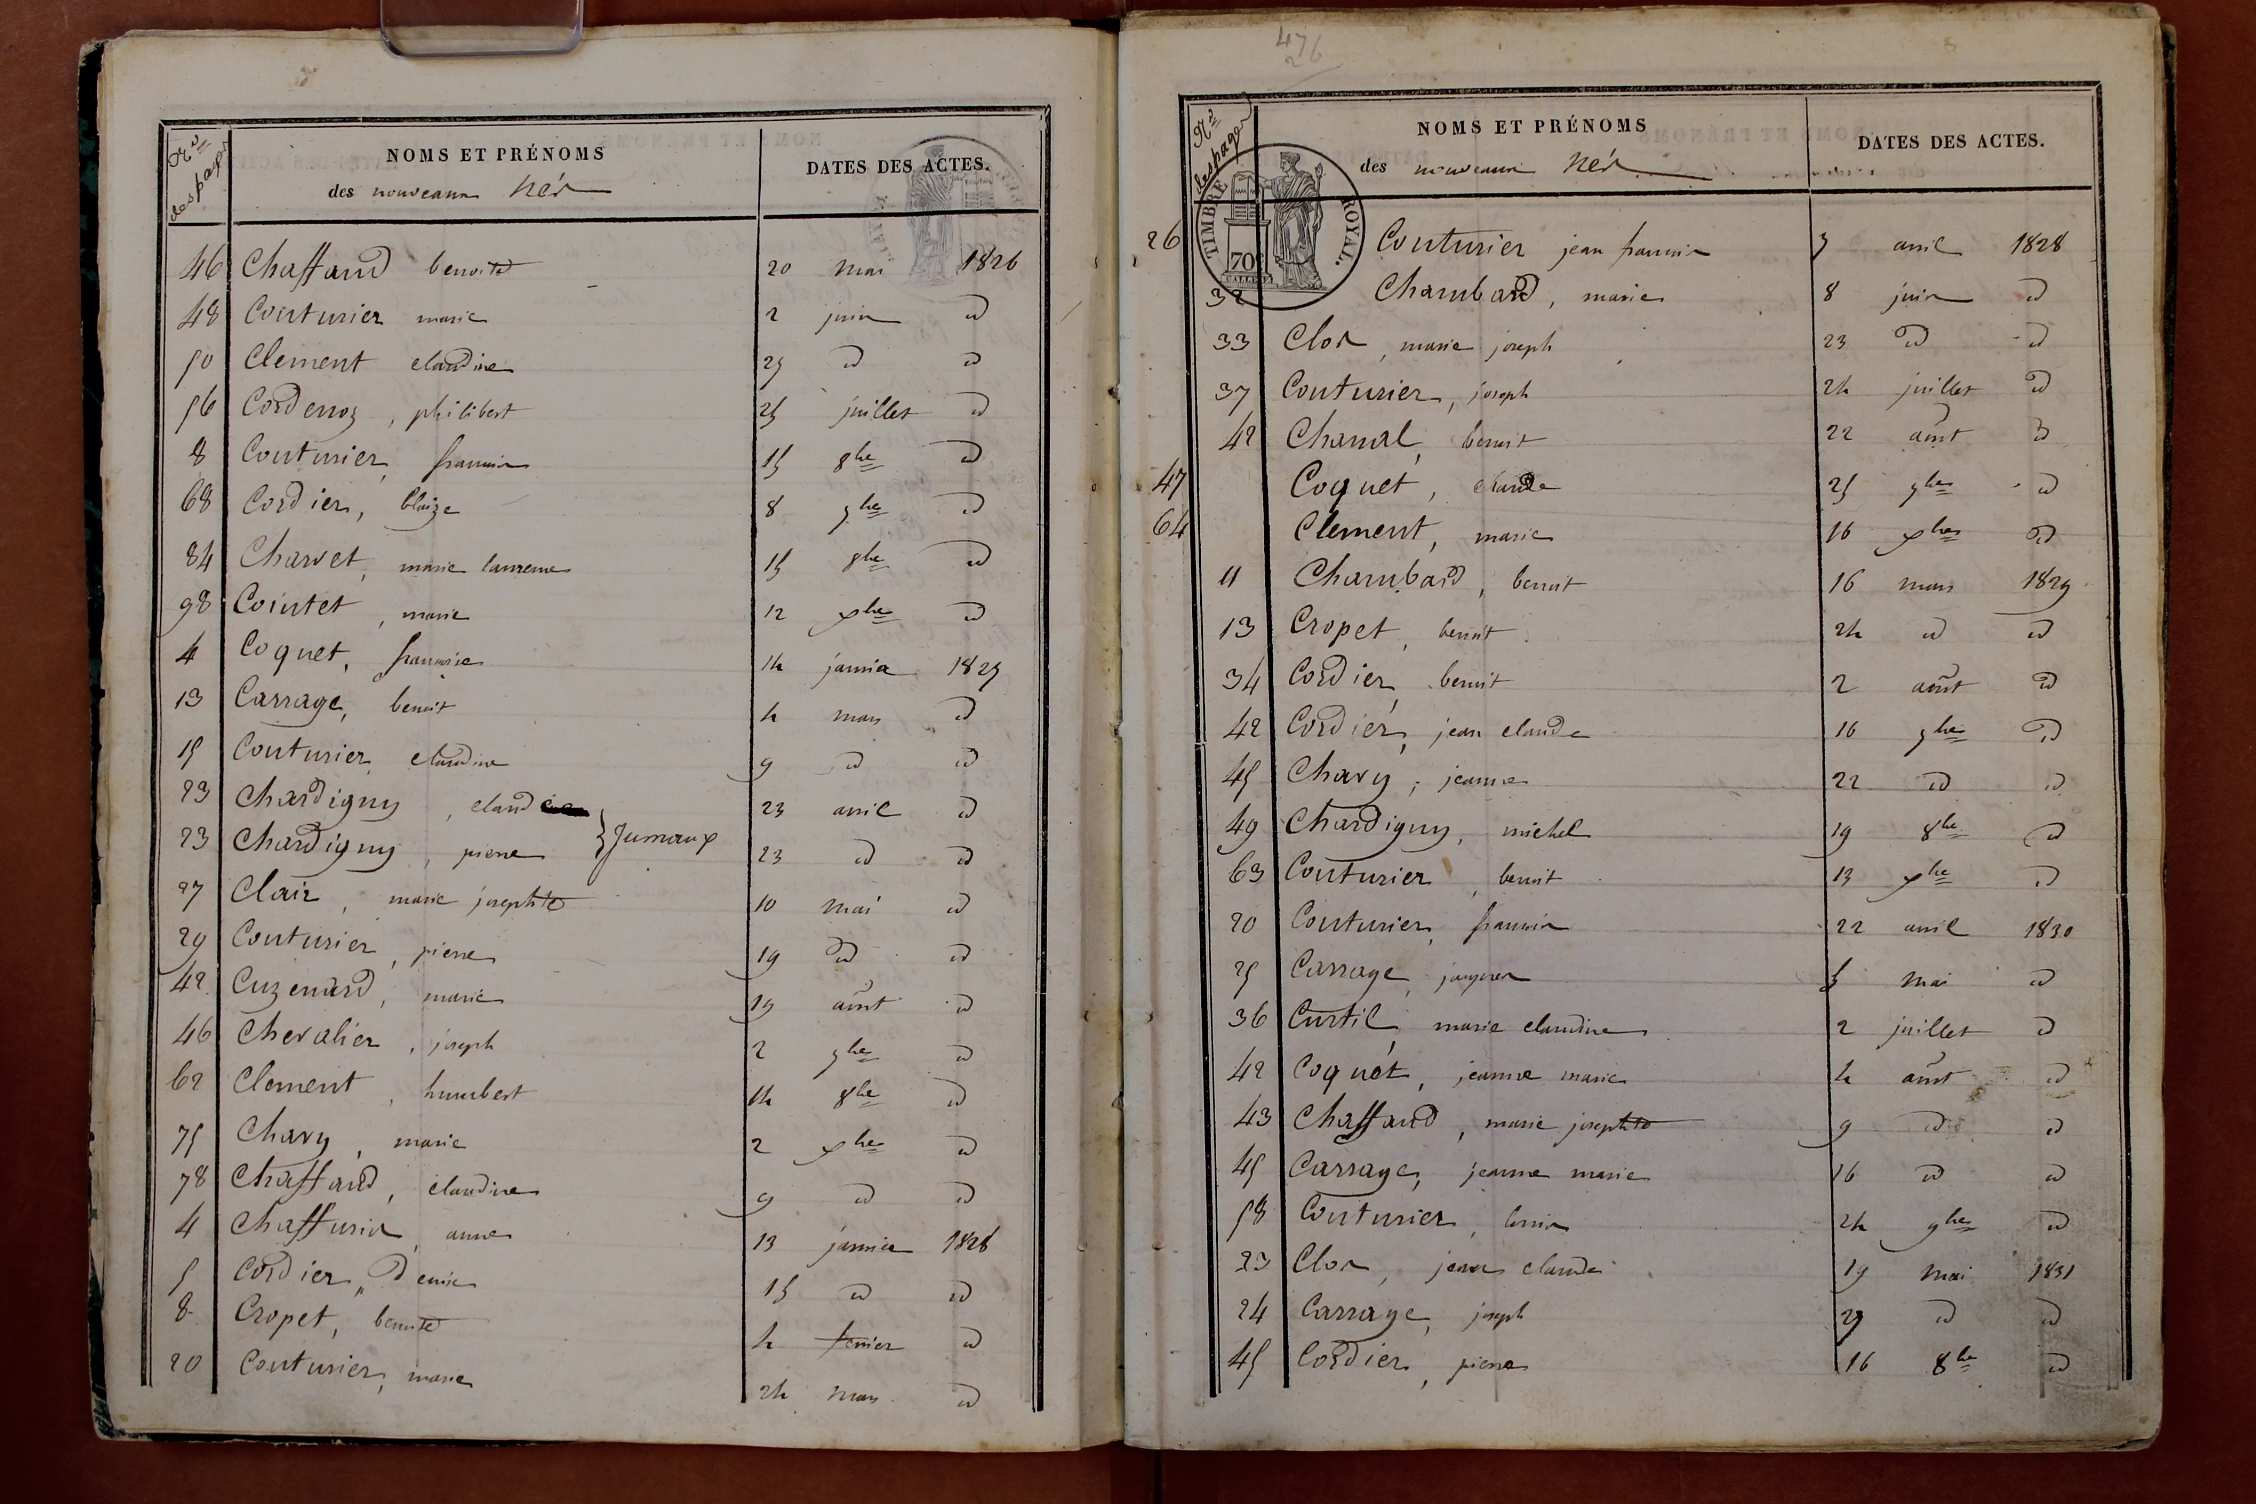 Nos des pages
NOMS ET PRÉNOMS
des nouveaux Nés
DATES DES ACTES.
46 Chaffaud benoite 20 mai 1826
48 Couturier marie 2 juin id
50 Clement claudine 29 id id
56 Cordenoz, philibert 25 juillet id
8 Couturier, francois 15 8bre id
68 Cordier, blaize 8 9bre id
84 Charvet, marie laurence 15 8bre id
98 Cointet, marie 12 xbre id
4 Coquet, francoise 14 janvier 1827
13 Carrage, benoit 4 mars id
15 Couturier, claudine 9 id id
23 Chardigny, claude 23 avril id
23 Chardigny, pierre } Jumeaux 23 id id
27 Clair, marie josephte 10 mai id
29 Couturier, pierre 19 id id
42 Cuzenard, marie 19 aout id
46 Chevalier, joseph 2 9bre id
62 Clement, humbert 14 8bre id
75 Chavy, marie 2 xbre id
78 Chaffaud, claudine 9 id id
4 Chaffurin, anne 13 janvier 1828
5 Cordier, Denis 15 id id
8 Cropet, benoite 4 fevrier id
20 Couturier, marie 24 mars id
476
26
Nos des pages
NOMS ET PRÉNOMS
des nouveaux Nés
DATES DES ACTES.
TIMBRE ROYAL.
70c
26 Couturier jean francois 3 avril 1828
32 Chambard, marie 8 juin id
33 Clos, marie joseph 23 id id
37 Couturier, joseph 24 juillet id
42 Chanal, benoit 22 aout id
47 Coquet, claude 25 9bre id
64 Clement, marie 16 xbre id
11 Chambard, benoit 16 mars 1829
13 Cropet, benoit 24 id id
34 Cordier, benoit 2 aout id
42 Cordier, jean claude 16 9bre id
45 Chavy, jeanne 22 id id
49 Chardigny, michel 19 8bre id
63 Couturier, benoit 13 xbre id
20 Couturier, francois 22 avril 1830
25 Carrage, jacques 5 mai id
36 Curtil, marie claudine 2 juillet id
42 Coquet, jeanne marie 4 aout id
43 Chaffaud, marie josephte 9 id id
45 Carrage, jeanne marie 16 id id
58 Couturier, louis 24 9bre id
23 Clos, jean claude 19 mai 1831
24 Carrage, joseph 29 id id
45 Cordier, pierre 16 8bre id